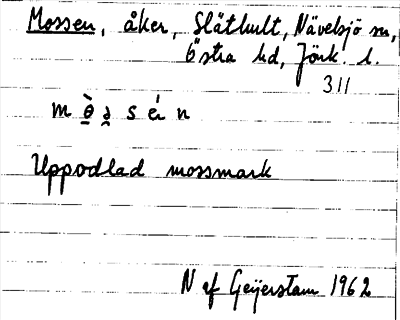 Mossen, åker, Släthult, Nävelsjö sn,
Östra hd, Jönk. l.
311
Uppodlad mossmark
N af Geijerstam 1962